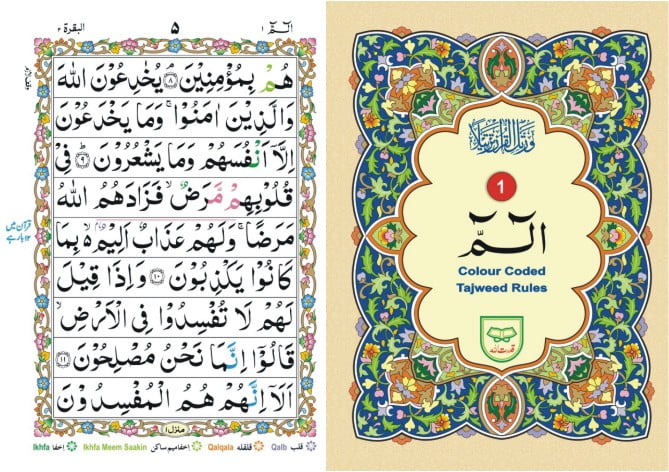 الٓمّٓ ١
٥
البقرة ٢
هُمْ بِمُؤْمِنِيْنَ ۘ ﴿۸﴾ يُخٰدِعُوْنَ اللّٰهَ
وَالَّذِيْنَ اٰمَنُوْا ۚ وَمَا يَخْدَعُوْنَ
اِلَّاۤ اَنْفُسَهُمْ وَمَا يَشْعُرُوْنَ ؕ ﴿۹﴾ فِىْ
قُلُوْبِهِمْ مَّرَضٌ ۙ فَزَادَهُمُ اللّٰهُ
مَرَضًا ۚ وَلَهُمْ عَذَابٌ اَلِيْمٌۢ ۙ بِمَا
كَانُوْا يَكْذِبُوْنَ ﴿۱۰﴾ وَاِذَا قِيْلَ
لَهُمْ لَا تُفْسِدُوْا فِى الْاَرْضِ ۙ
قَالُوْاۤ اِنَّمَا نَحْنُ مُصْلِحُوْنَ ﴿۱۱﴾
اَلَاۤ اِنَّهُمْ هُمُ الْمُفْسِدُوْنَ
منزل ۱
Ikhfa اخفا Ikhfa Meem Saakin اخفا میم ساکن Qalqala قلقلہ Qalb قلب
وَرَتِّلِ الْقُرْاٰنَ تَرْتِيْلًا
1
الٓمّٓ
Colour Coded
Tajweed Rules
قدرت اللہ